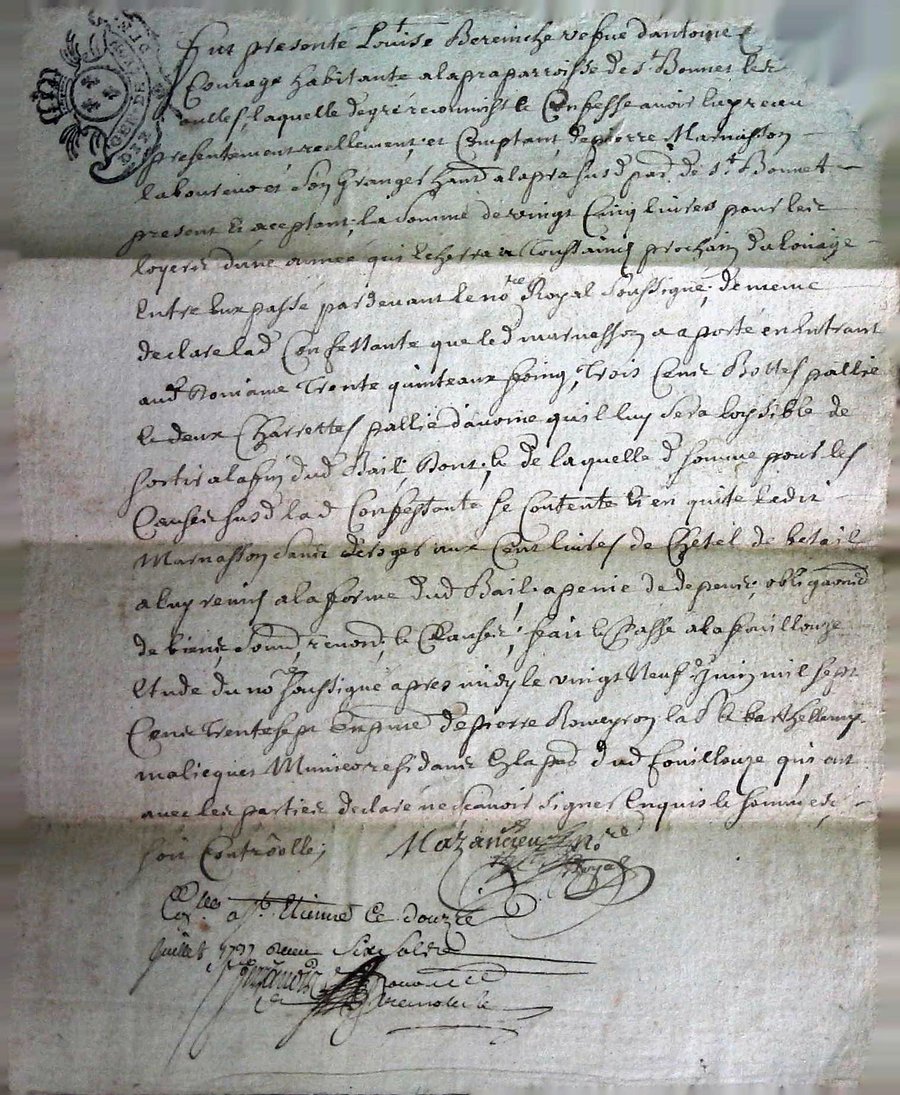 GEN DE
Fut presenté Louise Bereinche vefue dantoine
Courage habitante a la pra parroisse de St Bonnet les
oulles, laquelle de gré reconnoist le Confesse avoir heu preau
presentement reellement et Comptant de pierre Marnasson
laboureur et son Granger hand a la pra susd par. de St Bonnet
present & aceptant, la somme de vingt Cinq livres pour les
loyers dune année qui echerra a Toussainct prochain du louage
Entre Eux passé pardevant le nore Royal soussigné, de meme
declare lad Confessante que led marnasson a aporté en Entrant
aud domaine Trente quinteaux foing, Trois Cens Bottes pallie
le deux Charrettes pallie davoine quil luy sera loysible de
sortir a la fin dud Bail, Dont, & de laquelle d somme pour les
Causes susd lad Confessante se Contente & en quite ledit
Marnasson sans deroger aux Cent livres de Chetel de betail
a luy remis a la forme dud Bail, a penie de depens, obligaond
de biens, soumd, renond, & Clauses, fait & Passé a la fouillouze
Etude du nore soussigné apres midy le vingt Neuf Juin mil sept
Cens Trente sept En pnce de pierre Romeyron la & barthellemy
malicques Munier residans En la par dud fouillouze qui ont
avec les parties declaré ne scavoir signer Enquis & sommes,
soit Controolle;
Mazancieux nore
Royal
Colle a St Etienne le douze
Juillet 1737 Receu Six solz